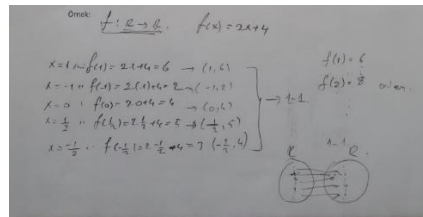 Örnek:
f: R → R. f(x) = 2x+4
x=1 f(1) = 2.1+4 = 6 → (1,6)
x=-1 f(-1) = 2.(-1)+4 = 2 → (-1,2)
x=0 f(0) = 2.0+4 = 4 → (0,4)
x=1/2 f(1/2) = 2.1/2+4 = 5 → (1/2, 5)
x=-1/2 f(-1/2) = 2.-1/2+4 = 3
→ 1-1
f(1) = 6
f(2) = 8
1-1
R R